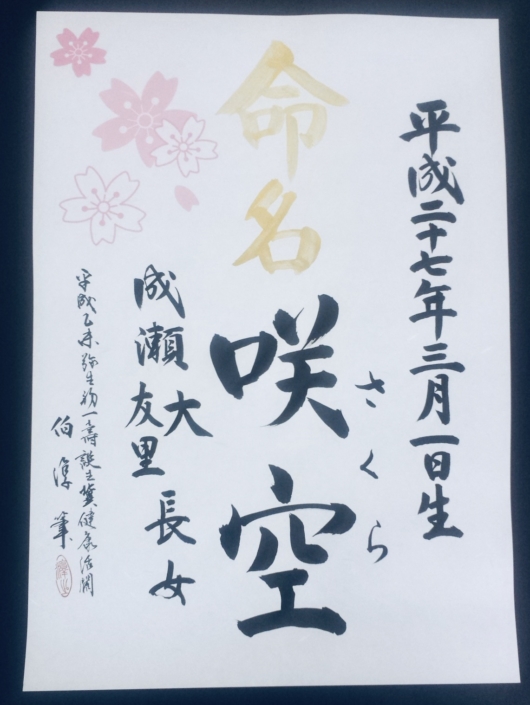 平成二十七年三月一日生
命名
咲空
さくら
成瀬 大
友里
長女
平成乙未弥生初一壽誕生冀健康活潤
伯淳筆